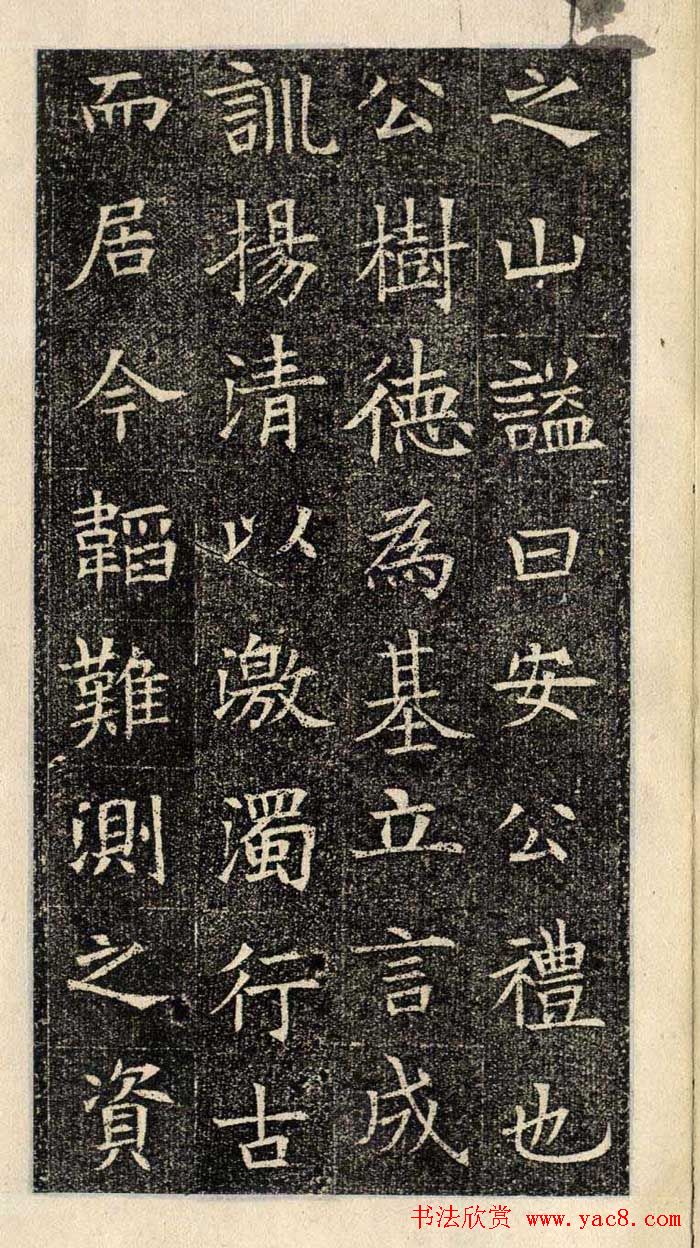 之山謚曰安公禮也
公樹德為基立言成
訓揚清以激濁行古
而居今韜難測之資
书法欣赏 www.yac8.com